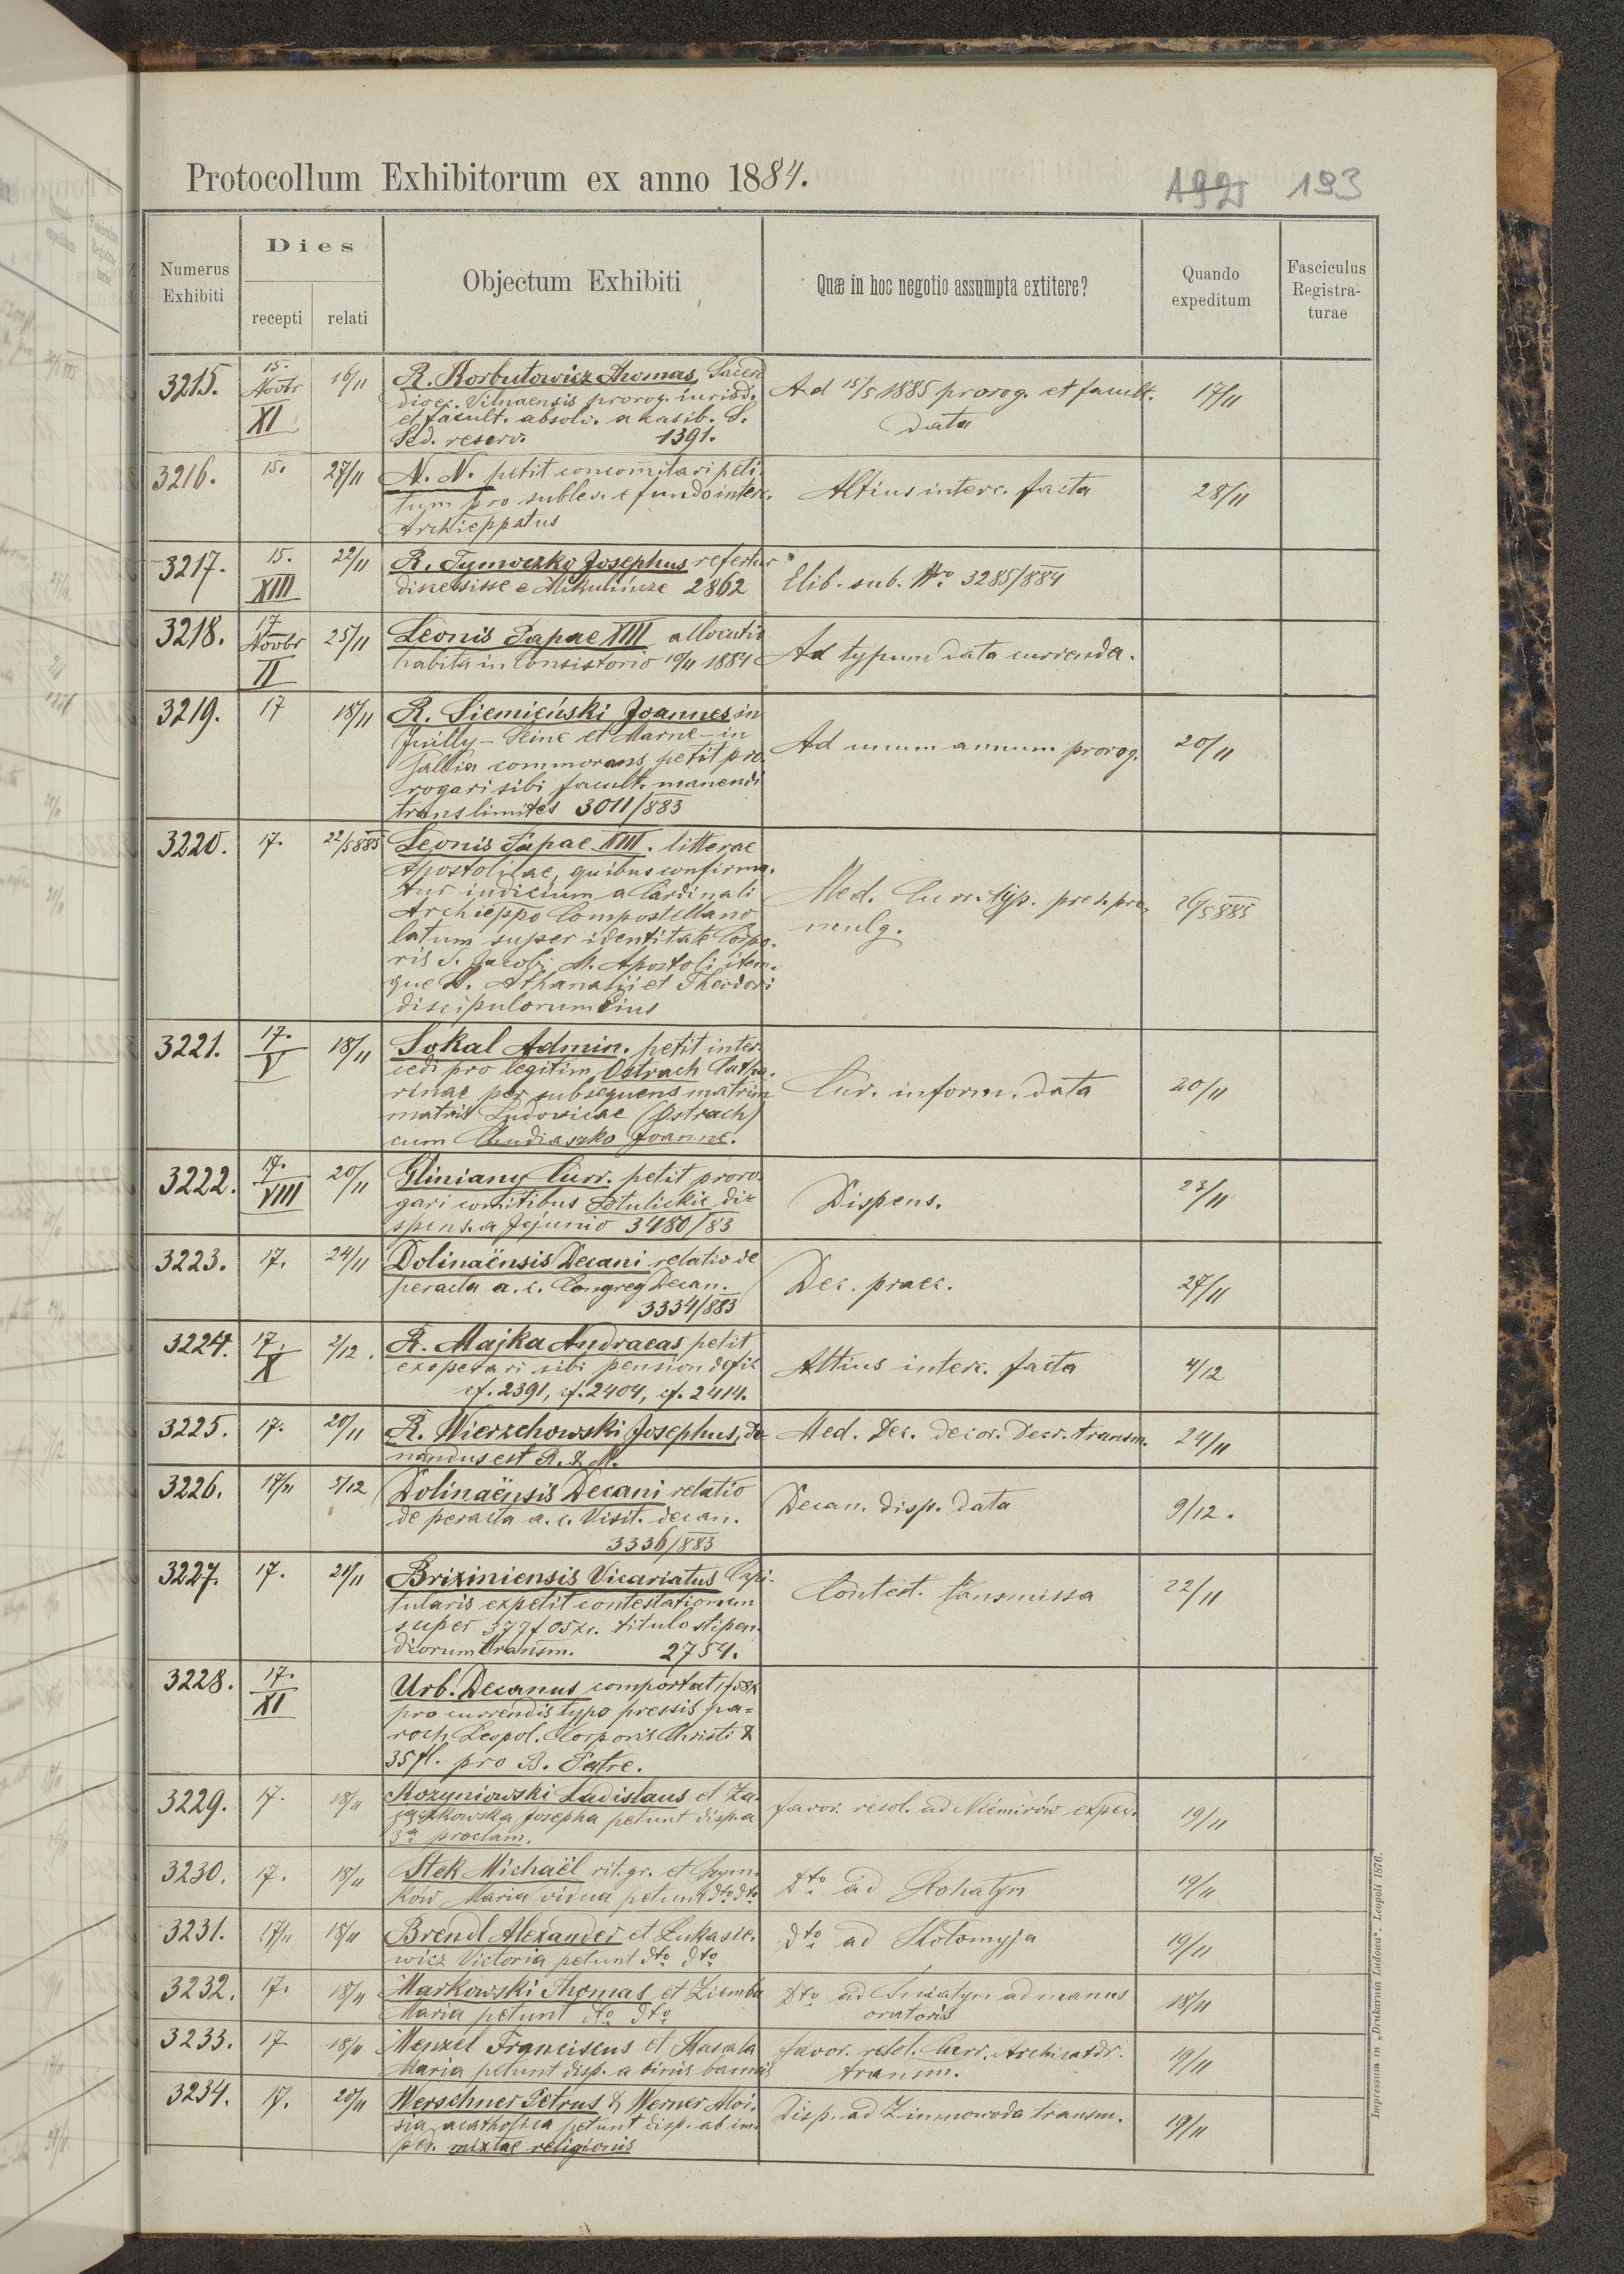 Protocollum Exhibitorum ex anno 1884.
193
Numerus Exhibiti
Dies
recepti
relati
Objectum Exhibiti
Quæ in hoc negotio assumpta extitere?
Quando expeditum
Fasciculus Registra-turae
3215.
15.
Novbr
XI
16/11
R. Korbutowicz Thomas, Sacerd
dioec. Vilnaensis prorog. iurisd.
et facult. absolv. a casib. S.
Sed. reserv. 1391.
Ad 15/5 1885 prorog. et facult.
data
17/11
3216.
15.
27/11
N. N. petit concomitari peti-
tum pro sublev. e fundo interc.
Archieppatus
Altius interc. facta
28/11
3217.
15.
XIII
22/11
R. Tymoczko Josephus refertur
discessisse e Mikulińcze 2862
Elib. sub. Nro 3285/884
3218.
17
Novbr
II
25/11
Leonis Papae XIII allocutio
habita in Consistorio 10/11 1884
Ad typum data currenda.
3219.
17
18/11
R. Siemieński Joannes in
Juilly - Seine et Marne - in
Gallia commorans, petit pro-
rogari sibi facult. manendi
trans limites 3011/883
Ad unum annum prorog.
20/11
3220.
17.
22/5 885
Leonis Papae XIII. litterae
Apostolicae, quibus confirma-
tur iudicium a Cardinali
Archieppo Compostellano
latum super identitate Corpo-
ris S. Jacobi M. Apostoli item-
que S. Athanasii et Theodori
discipulorum Eius
Med. Curr. typ. pres. pro-
mulg.
26/5 885
3221.
17.
V
18/11
Sokal Admin. petit inter-
cedi pro legitim Ostrach Catha-
rinae per subsequens matrim
matris Ludovicae (Ostrach)
cum Chudiaszko Joanne.
Cur. inform. data
20/11
3222.
17.
VIII
20/11
Gliniany Curr. petit proro-
gari comitibus Potulickie di-
spens. a Jejunio 3480/83
Dispens.
23/11
3223.
17.
24/11
Dolinaënsis Decani relatio de
peracta a. c. Congreg Decan.
3334/883
Dec. praec.
27/11
3224.
17.
X
2/12.
R. Majka Andraeas petit
exoperari sibi pension defic
cf. 2391, cf. 2404, cf. 2414.
Altius interc. facta
4/12
3225.
17.
20/11
R. Wierzchowski Josephus, do-
nandus est R. & M.
Med. Dec. decor. Decr. transm.
24/11
3226.
17/11
5/12
Dolinaënsis Decani relatio
de peracta a. c. Visit. decan.
3336/883
Decan. disp. data
9/12.
3227.
17.
21/11
Brixiniensis Vicariatus Capi-
tularis expetit contestationem
super 377f 05xr. titulo stipen-
diorum transm. 2754.
Contest. transmissa
22/11
3228.
17.
XI
Urb. Decanus comportat
pro currendis typo pressis pa-
roch. Leopol. Corporis Christi &
35 fl. pro B. Patre.
3229.
17.
18/11
Ladislaus et
Josepha petunt disp. a
3ª proclam.
favor. resol. ad Niemirów exped.
19/11
3230.
17.
18/11
Stek Michaël rit. gr. et
Maria vidua petunt dto dto
Dto ad Rohatyn
19/11
3231.
17/11
18/11
Brendl Alexander et Łukasie-
wicz Victoria petunt dto dto
dto ad Kołomyja
19/11
3232.
17.
18/11
Markowski Thomas et Ziemba
Maria petunt dto dto
Dto ad Śniatyn ad manus
oratoris
18/11
3233.
17
18/11
Menzel Franciscus et
Maria petunt disp. a binis bannis
favor. resol. Curr. Archicatdr.
transm.
19/11
3234.
17.
20/11
Werschner Petrus & Werner Aloi-
sia, acatholica petunt disp. ab im-
ped. mixtae religionis
Disp. ad Zimnowoda transm.
19/11
Impressum in „Drukarnia Ludowa“. Leopoli 1876.